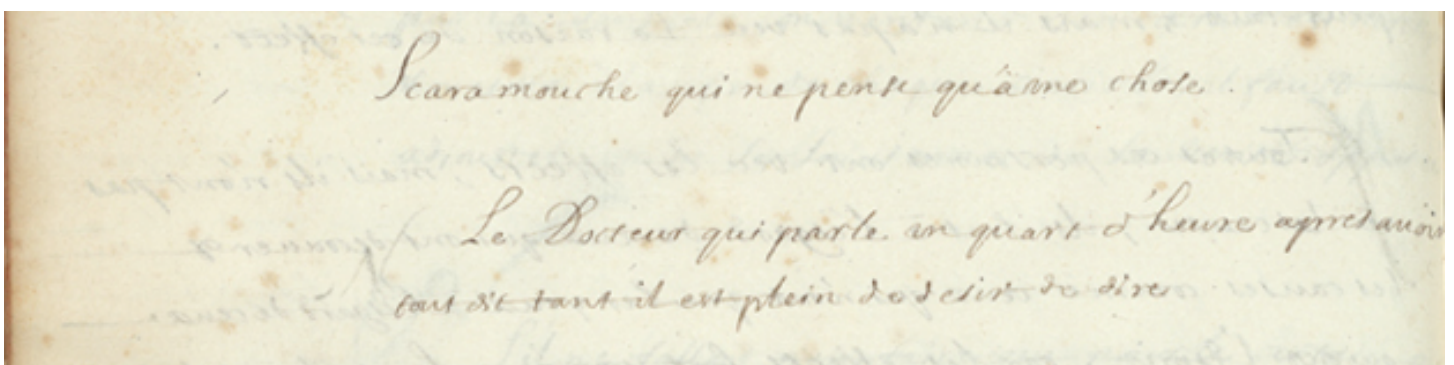 Scaramouche qui ne pense qu'à une chose.
Le Docteur qui parle un quart d'heure apres auoir
tout dit tant il est plein de desir de dire